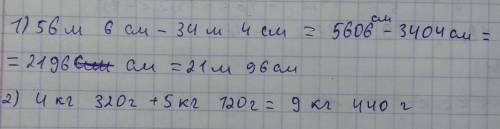 1) 56 м 6 см - 34 м 4 см = 5606 см - 3404 см =
= 2196 см = 21 м 96 см
2) 4 кг 320 г + 5 кг 120 г = 9 кг 440 г